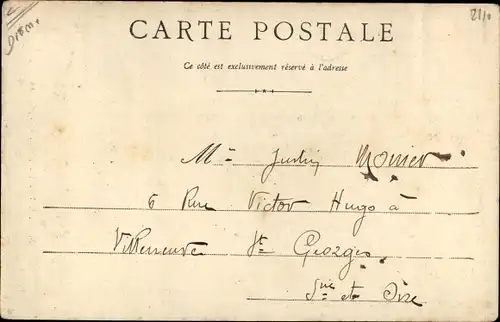 CARTE POSTALE
Ce côté est exclusivement réservé à l'adresse
Justin Monier
6 Rue Victor Hugo à
Villeneuve St Georges
Sne et Oise